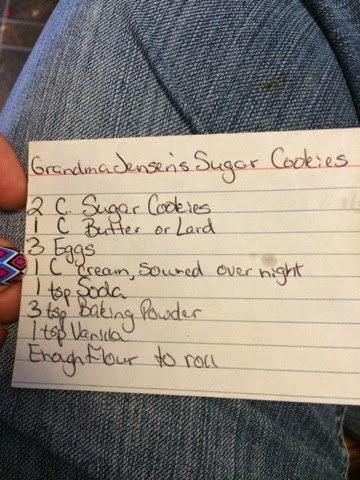 Grandma Jensen's Sugar Cookies
2 C. Sugar Cookies
1 C Butter or Lard
3 Eggs
1 C Cream, Soured over night
1 tsp Soda
3 tsp Baking Powder
1 tsp Vanilla
Enagh Flour to roll